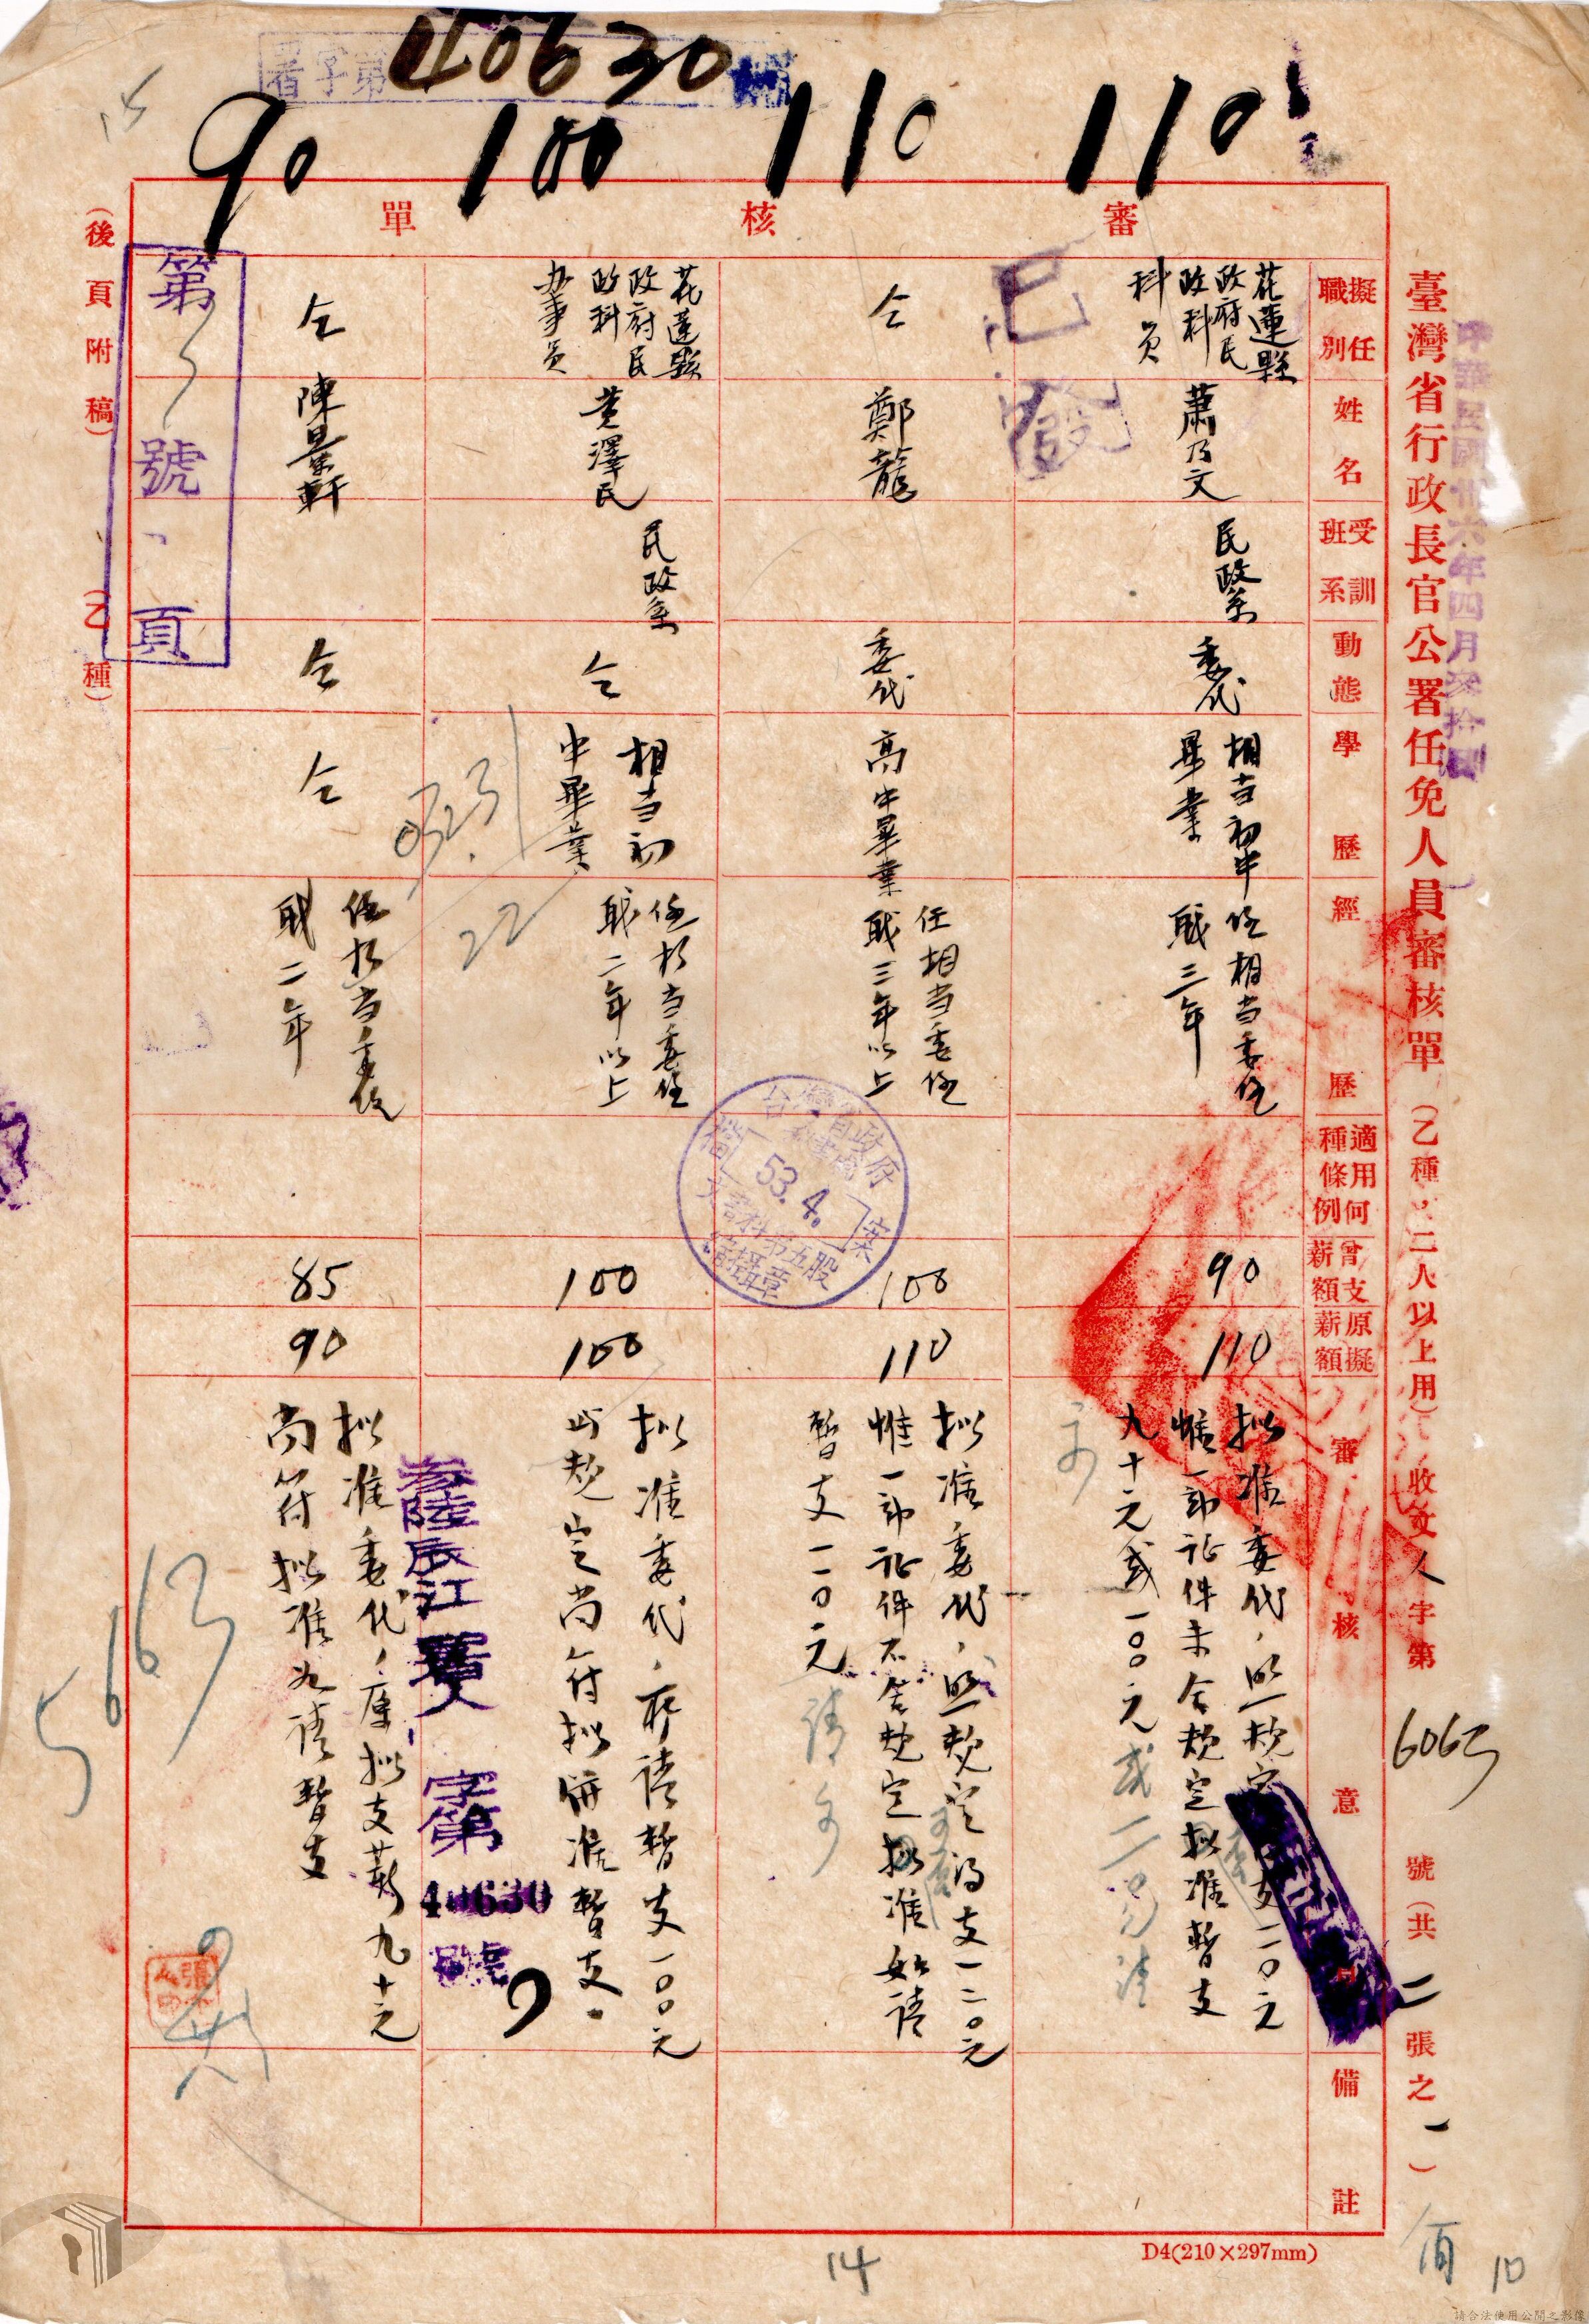 臺灣省行政長官公署任免人員審核單(乙種:二人以上用)收文人字第6063號(共二張之一)
中華民國卅六年四月
審核單
擬任職別
姓名
受訓班系
動態
學歷
經歷
適用何種條例
曾支薪額
原擬薪額
審核意見
備註
110
花蓮縣
政府民
政科
科員
蕭乃文
民政系
委代
相当初中
畢業
任相当委任
職三年
90
110
拟准委代,照規定
支一二0元
惟一部証件未合規定拟准暫支
九十元或一00元
110
仝
鄭龍
委代
高中畢業
任相当委任
職三年以上
100
110
拟准委代,照規定得支一二0元
惟一部証件不合規定拟准如請
暫支一一0元
100
花蓮縣
政府民
政科
办事員
黄澤民
民政系
仝
相当初
中畢業
任相当委任
職二年以上
100
100
拟准委代,所請暫支一00元
与規定尚符拟併准暫支。
90
仝
陳景軒
仝
仝
任相当委任
職二年
85
90
拟准委代,原拟支薪九十元
尚符拟准如請暫支
已發
署字第40630號
參陸辰江
字第
40630
號
台灣省政府
秘書處
檔案
53.4.
文書科第五股
編攝章
第
號
頁
(後頁附稿)
(乙種)
5163
0323
22
15
14
10
D4(210×297mm)
請合法使用公開之影像